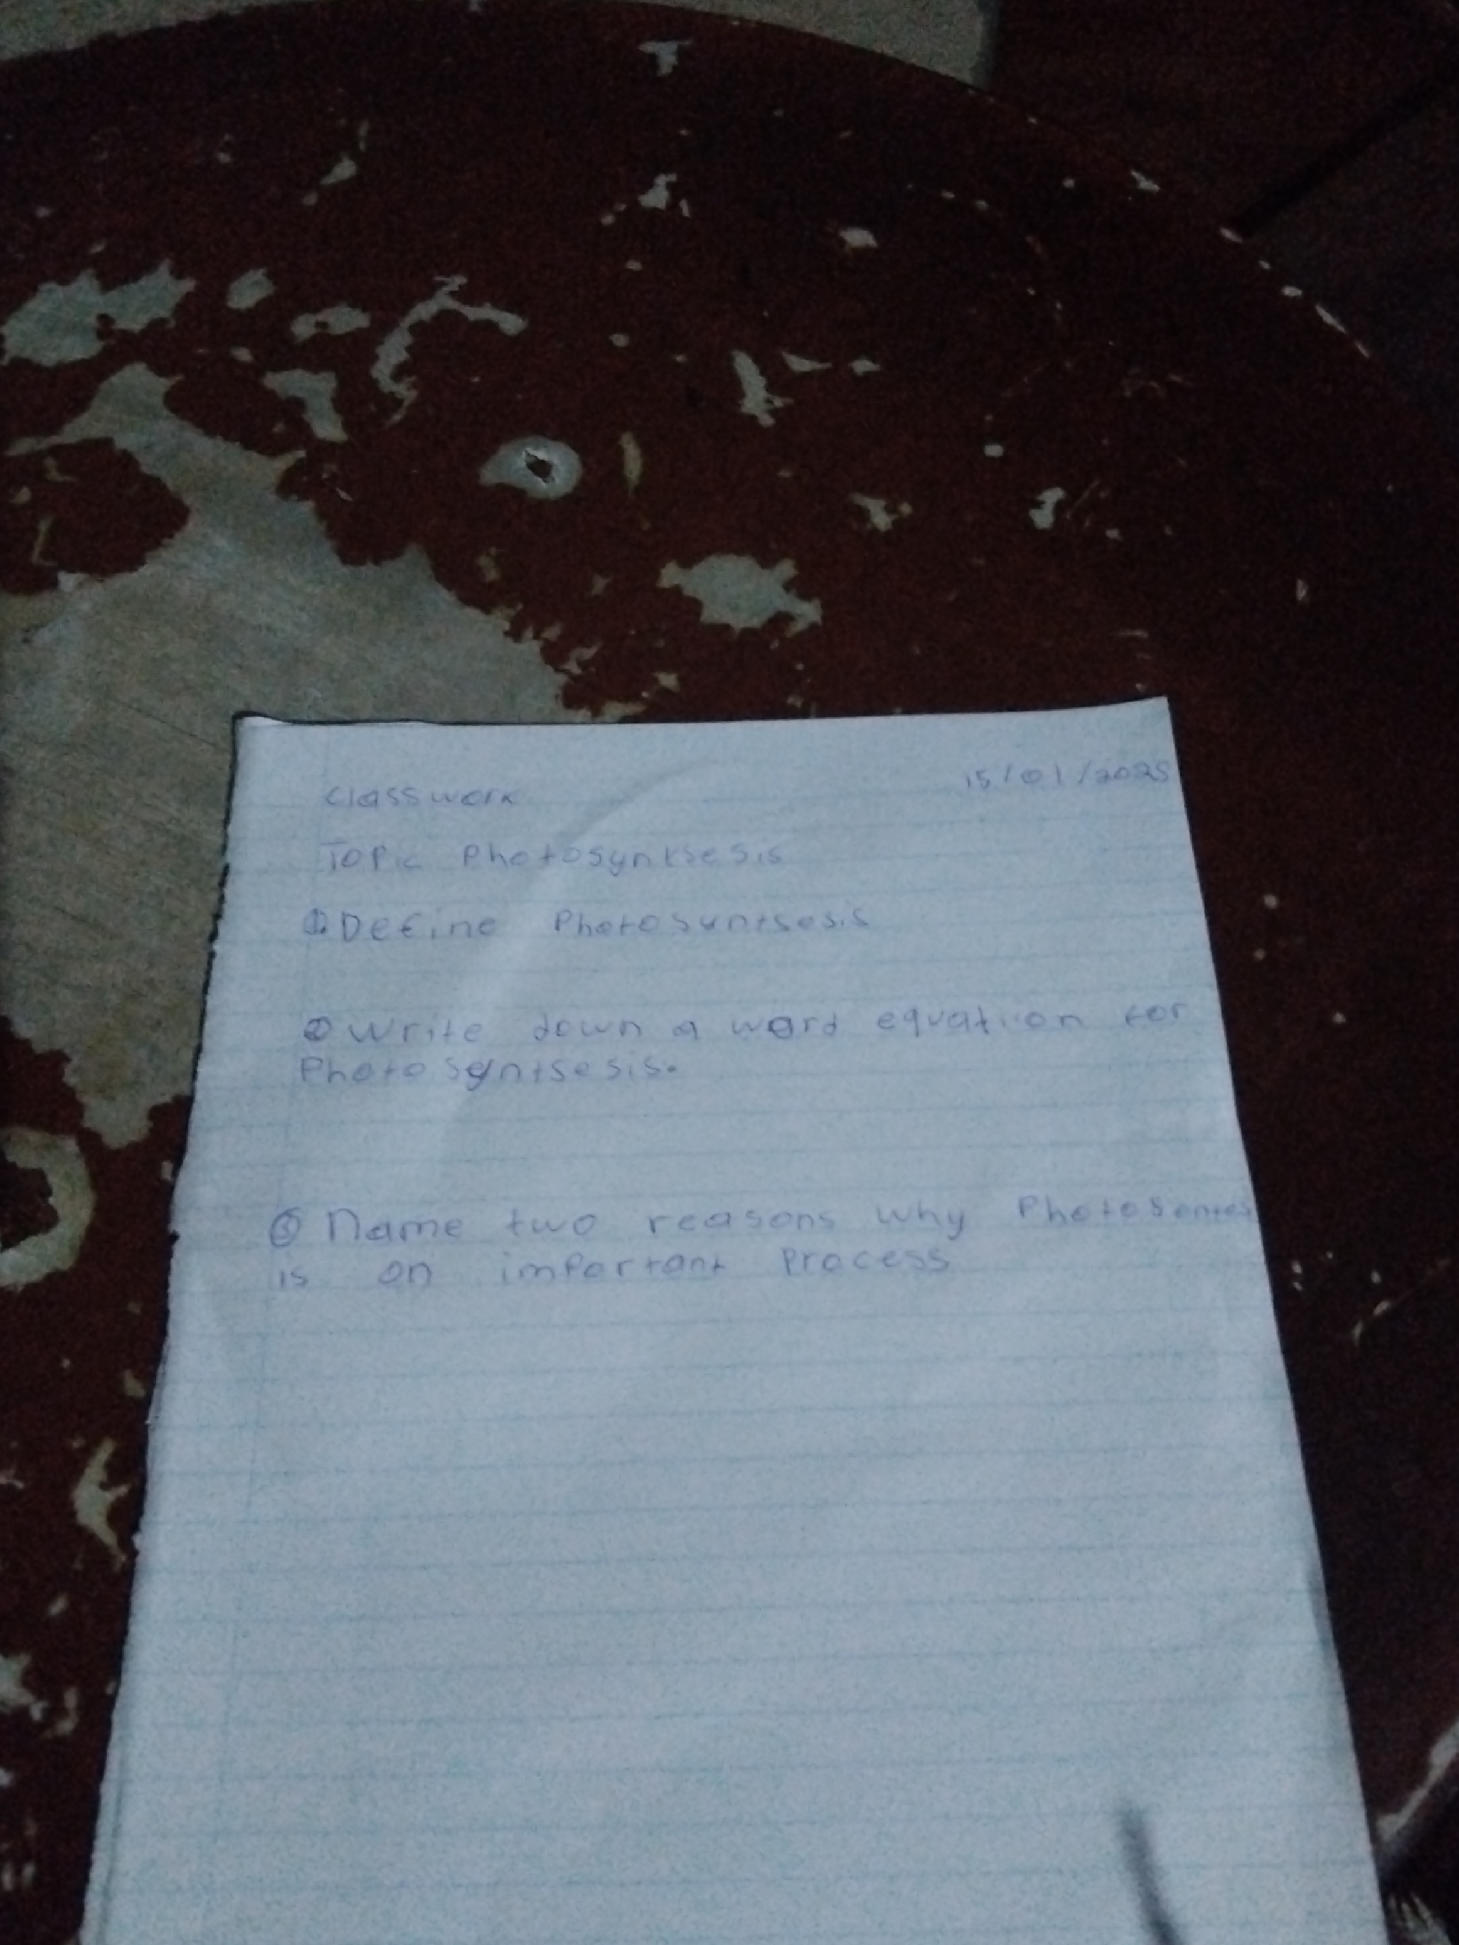 Classwork 15/01/2025
Topic Photosyntsesis
① Define Photosyntsesis
② Write down a word equation for
Photosyntsesis.
③ Name two reasons why
is an important Process